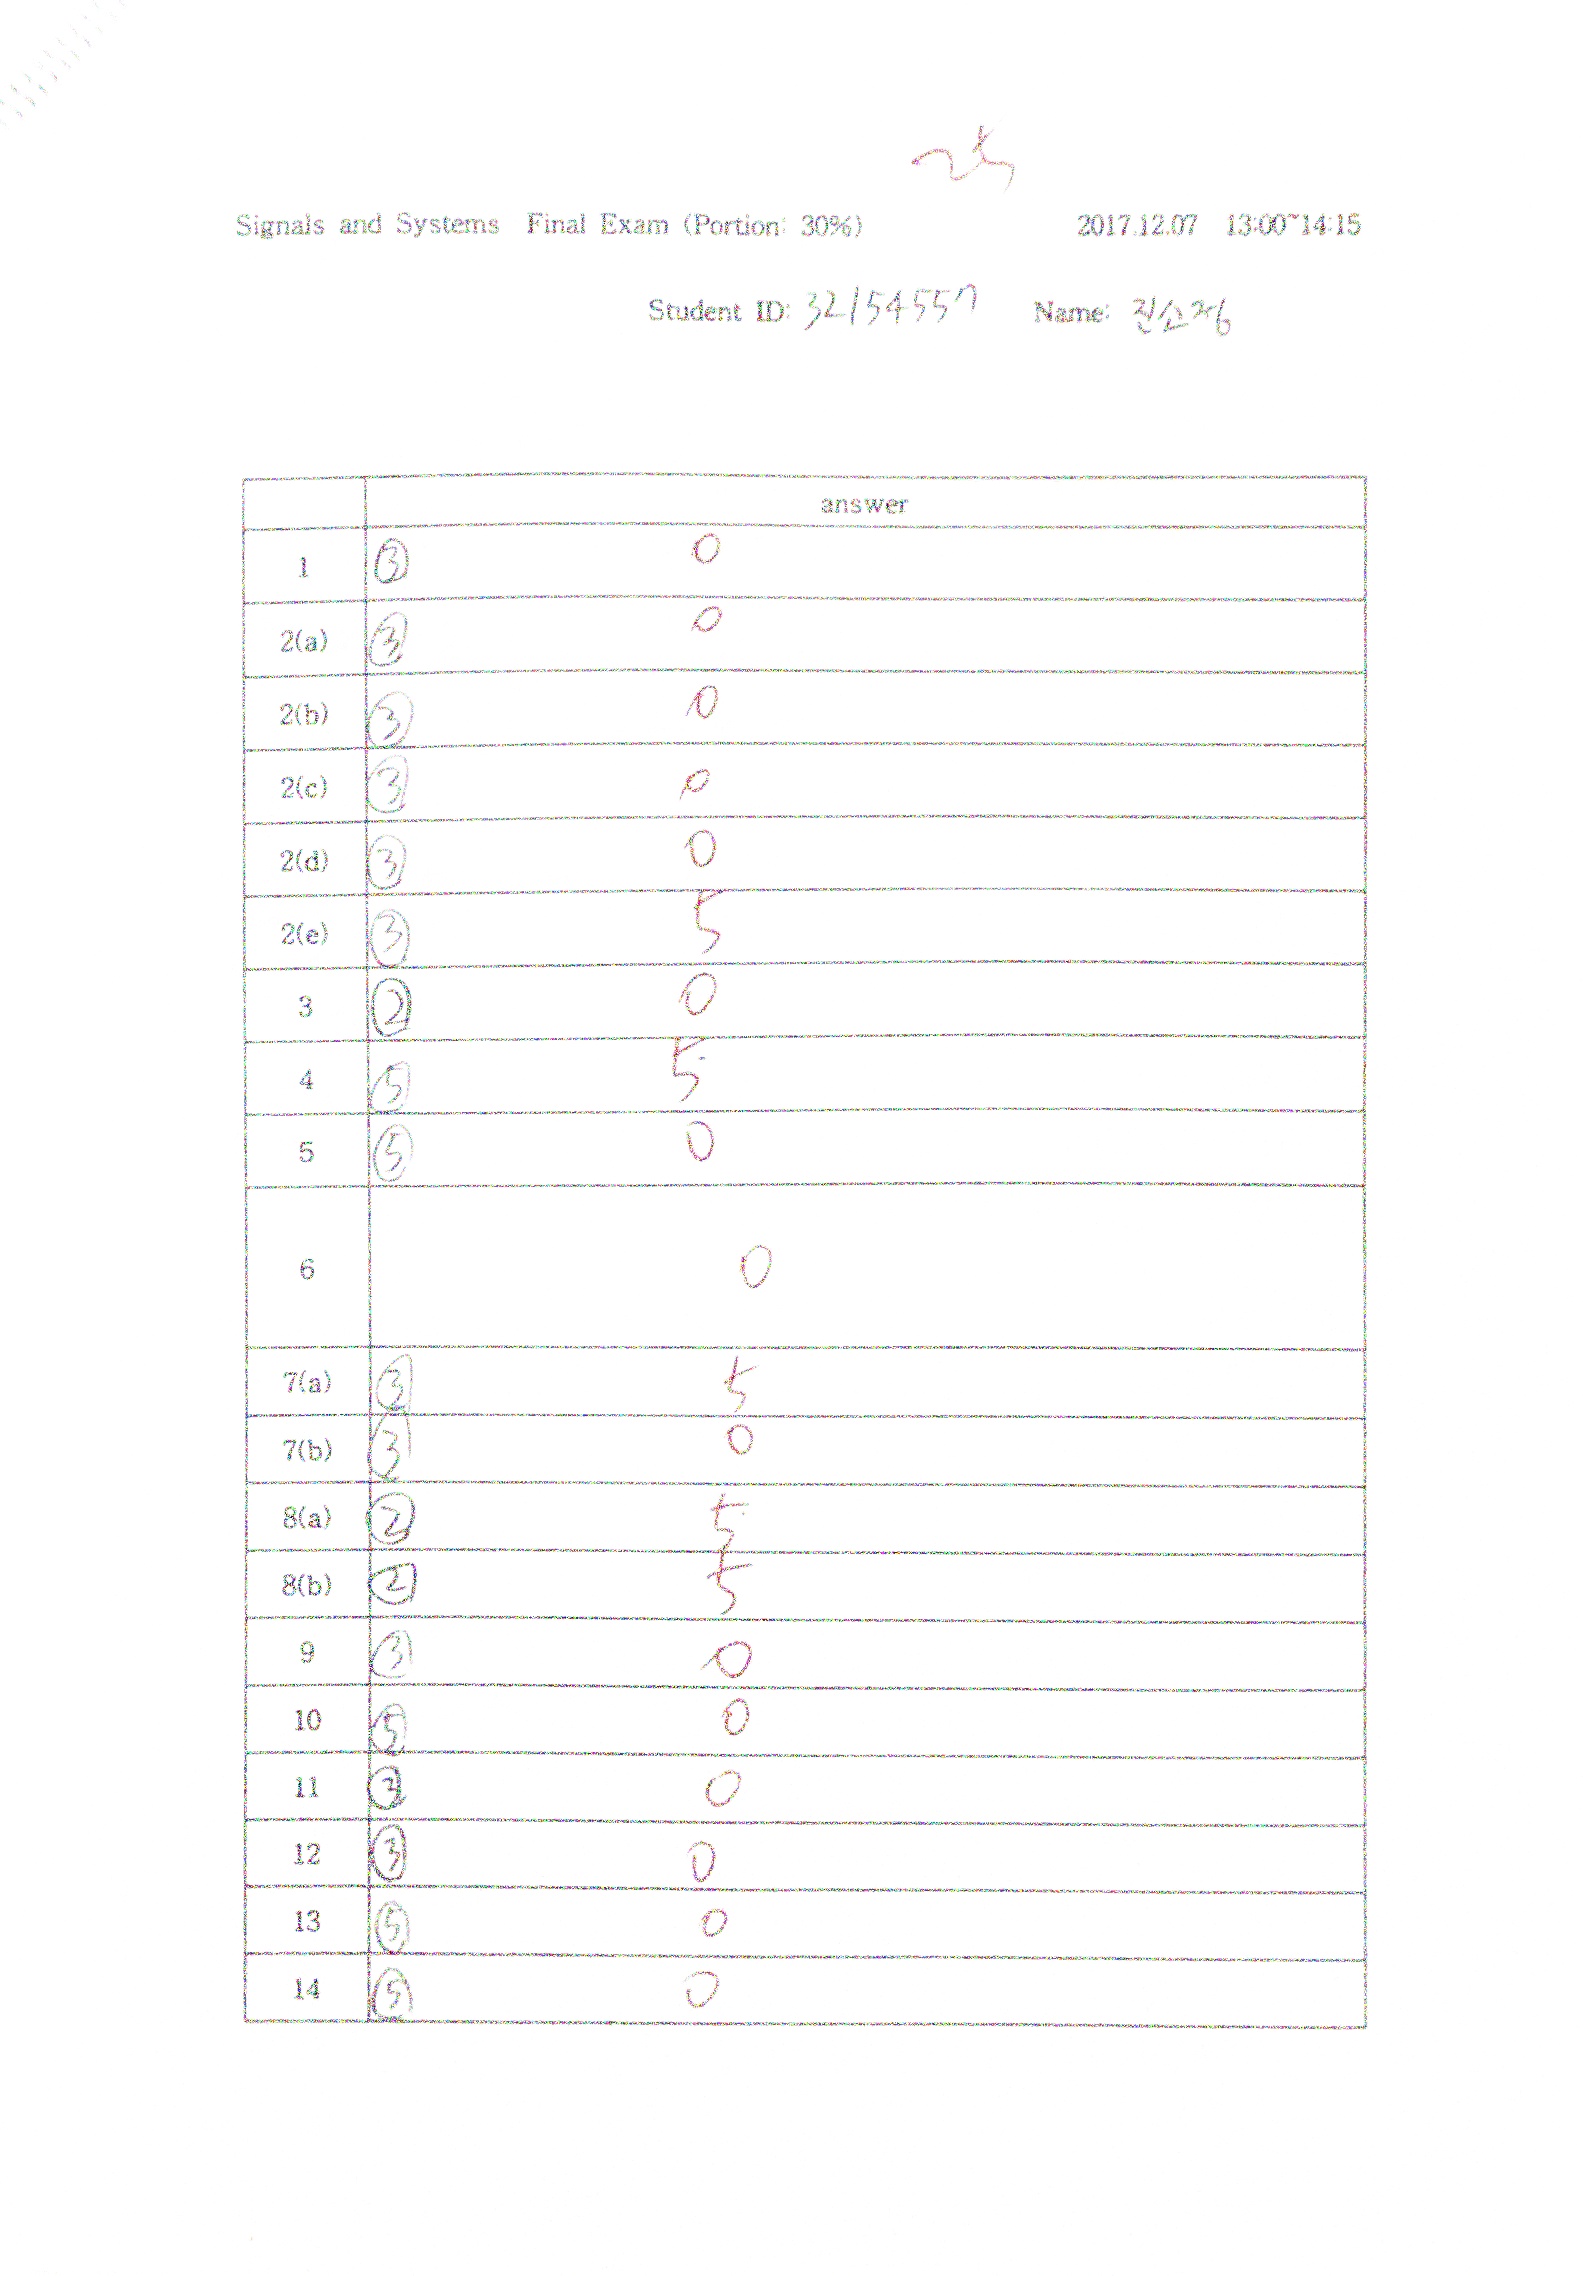 25
Signals and Systems Final Exam (Portion: 30%) 2017.12.07 13:00~14:15
Student ID: 32154557 Name:
answer
1 ③ 0
2(a) ③ 0
2(b) ③ 0
2(c) ③ 0
2(d) ③ 0
2(e) ③ 5
3 ② 0
4 ⑤ 5
5 ⑤ 0
6 0
7(a) ③ 5
7(b) ③ 0
8(a) ② 5
8(b) ② 5
9 ③ 0
10 ⑤ 0
11 0
12 ③ 0
13 ⑤ 0
14 ⑤ 0